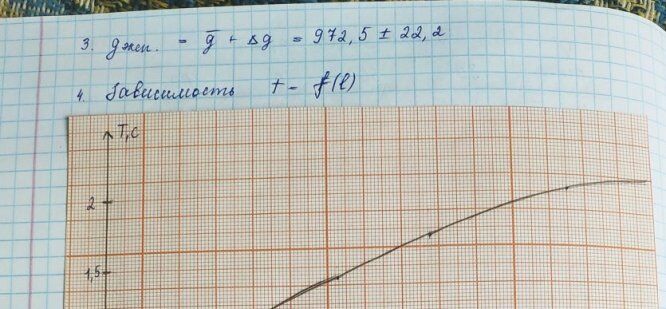 3. gэксп. = g̅ + Δg = 972,5 ± 22,2
4. Зависимость T = f(l)
T, c
2
1,5